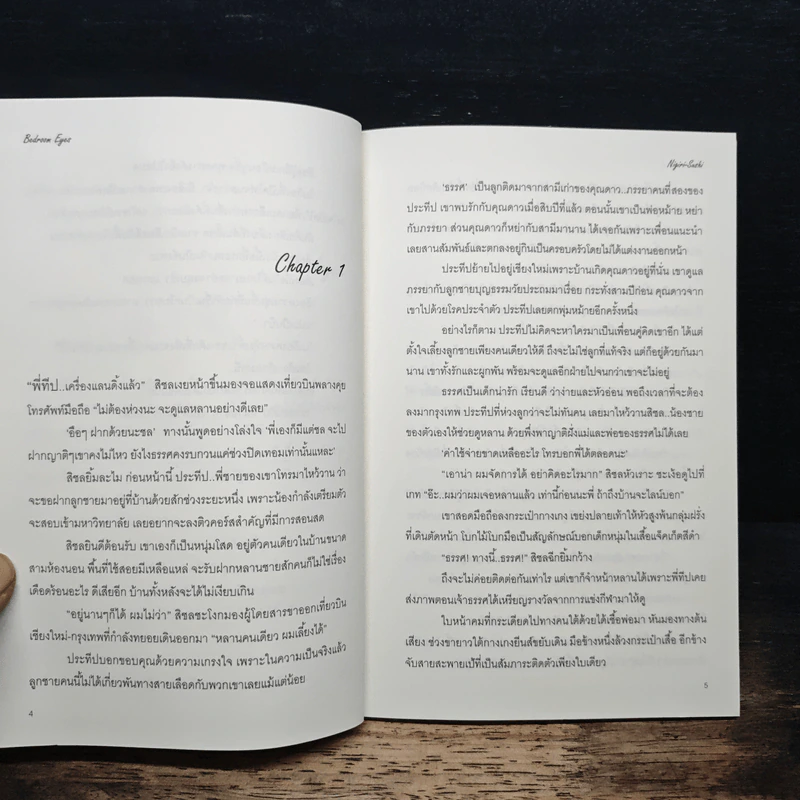 Bedroom Eyes
Chapter 1
“พี่ทีป..เครื่องแลนดิ้งแล้ว” สิชลเงยหน้าขึ้นมองจอแสดงเที่ยวบินพลางคุย
โทรศัพท์มือถือ “ไม่ต้องห่วงนะ จะดูแลหลานอย่างดีเลย”
‘อือๆ ฝากด้วยนะชล’ ทางนั้นพูดอย่างโล่งใจ ‘พี่เองก็มีแต่ชล จะไป
ฝากญาติๆเขาคงไม่ไหว ยังไงธรรศคงรบกวนแค่ช่วงปิดเทอมเท่านั้นแหละ’
สิชลยิ้มละไม ก่อนหน้านี้ ประทีป..พี่ชายของเขาโทรมาไหว้วาน ว่า
จะขอฝากลูกชายมาอยู่ที่บ้านด้วยสักช่วงระยะหนึ่ง เพราะน้องกำลังเตรียมตัว
จะสอบเข้ามหาวิทยาลัย เลยอยากจะลงติวคอร์สสำคัญที่มีการสอนสด
สิชลยินดีต้อนรับ เขาเองก็เป็นหนุ่มโสด อยู่ตัวคนเดียวในบ้านขนาด
สามห้องนอน พื้นที่ใช้สอยมีเหลือแหล่ จะรับฝากหลานชายสักคนก็ไม่ใช่เรื่อง
เดือดร้อนอะไร ดีเสียอีก บ้านทั้งหลังจะได้ไม่เงียบเกิน
“อยู่นานๆก็ได้ ผมไม่ว่า” สิชลชะโงกมองผู้โดยสารขาออกเที่ยวบิน
เชียงใหม่-กรุงเทพที่กำลังทยอยเดินออกมา “หลานคนเดียว ผมเลี้ยงได้”
ประทีปบอกขอบคุณด้วยความเกรงใจ เพราะในความเป็นจริงแล้ว
ลูกชายคนนี้ไม่ได้เกี่ยวพันทางสายเลือดกับพวกเขาเลยแม้แต่น้อย
4
Nigiri-Sushi
‘ธรรศ’ เป็นลูกติดมาจากสามีเก่าของคุณดาว..ภรรยาคนที่สองของ
ประทีป เขาพบรักกับคุณดาวเมื่อสิบปีที่แล้ว ตอนนั้นเขาเป็นพ่อหม้าย หย่า
กับภรรยา ส่วนคุณดาวก็หย่ากับสามีมานาน ได้เจอกันเพราะเพื่อนแนะนำ
เลยสานสัมพันธ์และตกลงอยู่กินเป็นครอบครัวโดยไม่ได้แต่งงานออกหน้า
ประทีปย้ายไปอยู่เชียงใหม่เพราะบ้านเกิดคุณดาวอยู่ที่นั่น เขาดูแล
ภรรยากับลูกชายบุญธรรมวัยประถมมาเรื่อย กระทั่งสามปีก่อน คุณดาวจาก
เขาไปด้วยโรคประจำตัว ประทีปเลยตกพุ่มหม้ายอีกครั้งหนึ่ง
อย่างไรก็ตาม ประทีปไม่คิดจะหาใครมาเป็นเพื่อนคู่คิดเขาอีก ได้แต่
ตั้งใจเลี้ยงลูกชายเพียงคนเดียวให้ดี ถึงจะไม่ใช่ลูกที่แท้จริง แต่ก็อยู่ด้วยกันมา
นาน เขาทั้งรักและผูกพัน พร้อมจะดูแลอีกฝ่ายไปจนกว่าเขาจะไม่อยู่
ธรรศเป็นเด็กน่ารัก เรียนดี ว่าง่ายและหัวอ่อน พอถึงเวลาที่จะต้อง
ลงมากรุงเทพ ประทีปที่ห่วงลูกว่าจะไม่ทันคน เลยมาไหว้วานสิชล..น้องชาย
ของตัวเองให้ช่วยดูหลาน ด้วยพึ่งพาญาติฝั่งแม่และพ่อของธรรศไม่ได้เลย
‘ค่าใช้จ่ายขาดเหลืออะไร โทรบอกพี่ได้ตลอดนะ’
“เอาน่า ผมจัดการได้ อย่าคิดอะไรมาก” สิชลหัวเราะ ชะเง้อดูไปที่
เกท “อ๊ะ..ผมว่าผมเจอหลานแล้ว เท่านี้ก่อนนะพี่ ถ้าถึงบ้านจะไลน์บอก”
เขาสอดมือถือลงกระเป๋ากางเกง เขย่งปลายเท้าให้หัวสูงพ้นกลุ่มฝรั่ง
ที่เดินตัดหน้า โบกไม้โบกมือเป็นสัญลักษณ์บอกเด็กหนุ่มในเสื้อแจ็คเก็ตสีดำ
“ธรรศ! ทางนี้..ธรรศ!” สิชลฉีกยิ้มกว้าง
ถึงจะไม่ค่อยติดต่อกันเท่าไร แต่เขาก็จำหน้าหลานได้เพราะพี่ทีปเคย
ส่งภาพตอนเจ้าธรรศได้เหรียญรางวัลจากการแข่งกีฬามาให้ดู
ใบหน้าคมที่กระเดียดไปทางคนใต้ด้วยได้เชื้อพ่อมา หันมองทางต้น
เสียง ช่วงขายาวใต้กางเกงยีนส์ขยับเดิน มือข้างหนึ่งล้วงกระเป๋าเสื้อ อีกข้าง
จับสายสะพายเป้ที่เป็นสัมภาระติดตัวเพียงใบเดียว
5